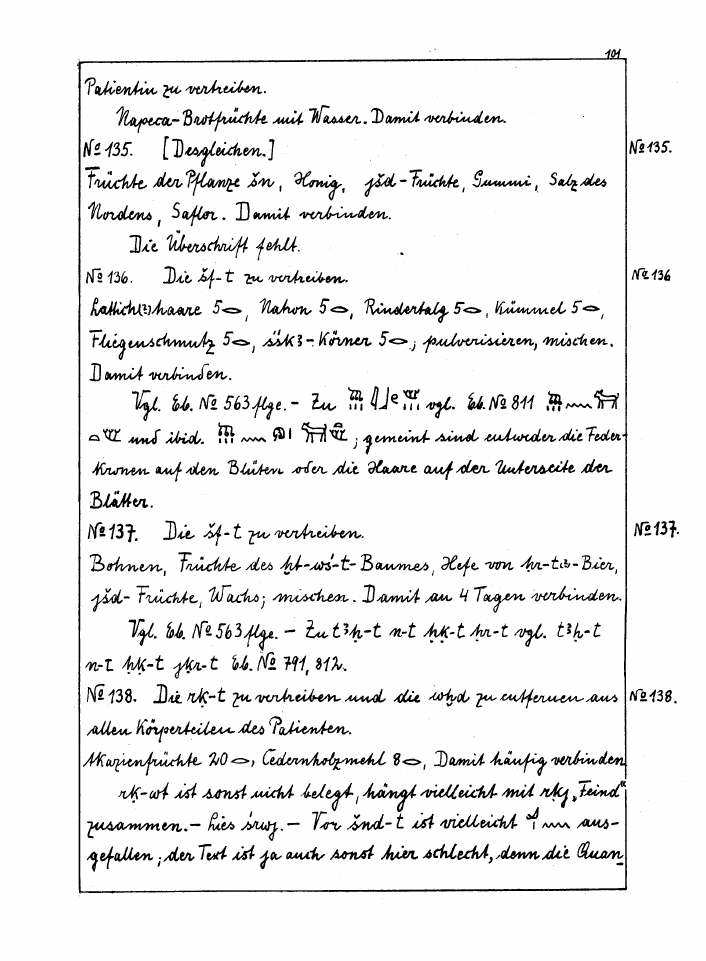 101
Patientin zu vertreiben.
Napeca-Brotfrüchte mit Wasser. Damit verbinden.
No 135. [Desgleichen.] No 135.
Früchte der Pflanze šn, Honig, jšd-Früchte, Gummi, Salz des
Nordens, Saflor. Damit verbinden.
Die Überschrift fehlt.
No 136. Die šf-t zu vertreiben. No 136
Lattich(?)haare 5, Natron 5, Rindertalg 5, Kümmel 5,
Fliegenschmutz 5, śśkꜣ-Körner 5; pulverisieren, mischen.
Damit verbinden.
Vgl. Eb. No 563 flge. - Zu vgl. Eb. No 811
und ibid. ; gemeint sind entweder die Feder-
kronen auf den Blüten oder die Haare auf der Unterseite der
Blätter.
No 137. Die šf-t zu vertreiben. No 137.
Bohnen, Früchte des ḫt-wś-t-Baumes, Hefe von -Bier,
jšd-Früchte, Wachs; mischen. Damit an 4 Tagen verbinden.
Vgl. Eb. No 563 flge. - Zu tꜣḥ-t n-t ḥḳ-t ḥr-t vgl. tꜣḥ-t
n-t ḥḳ-t jḳr-t Eb. No 791, 812.
No 138. Die rḳ-t zu vertreiben und die wḫd zu entfernen aus No 138.
allen Körperteilen des Patienten.
Akazienfrüchte 20, Cedernholzmehl 8, Damit häufig verbinden
rḳ-wt ist sonst nicht belegt, hängt vielleicht mit rḳj „Feind“
zusammen. - Lies śrwj. - Vor šnd-t ist vielleicht aus-
gefallen; der Text ist ja auch sonst hier schlecht, denn die Quan-